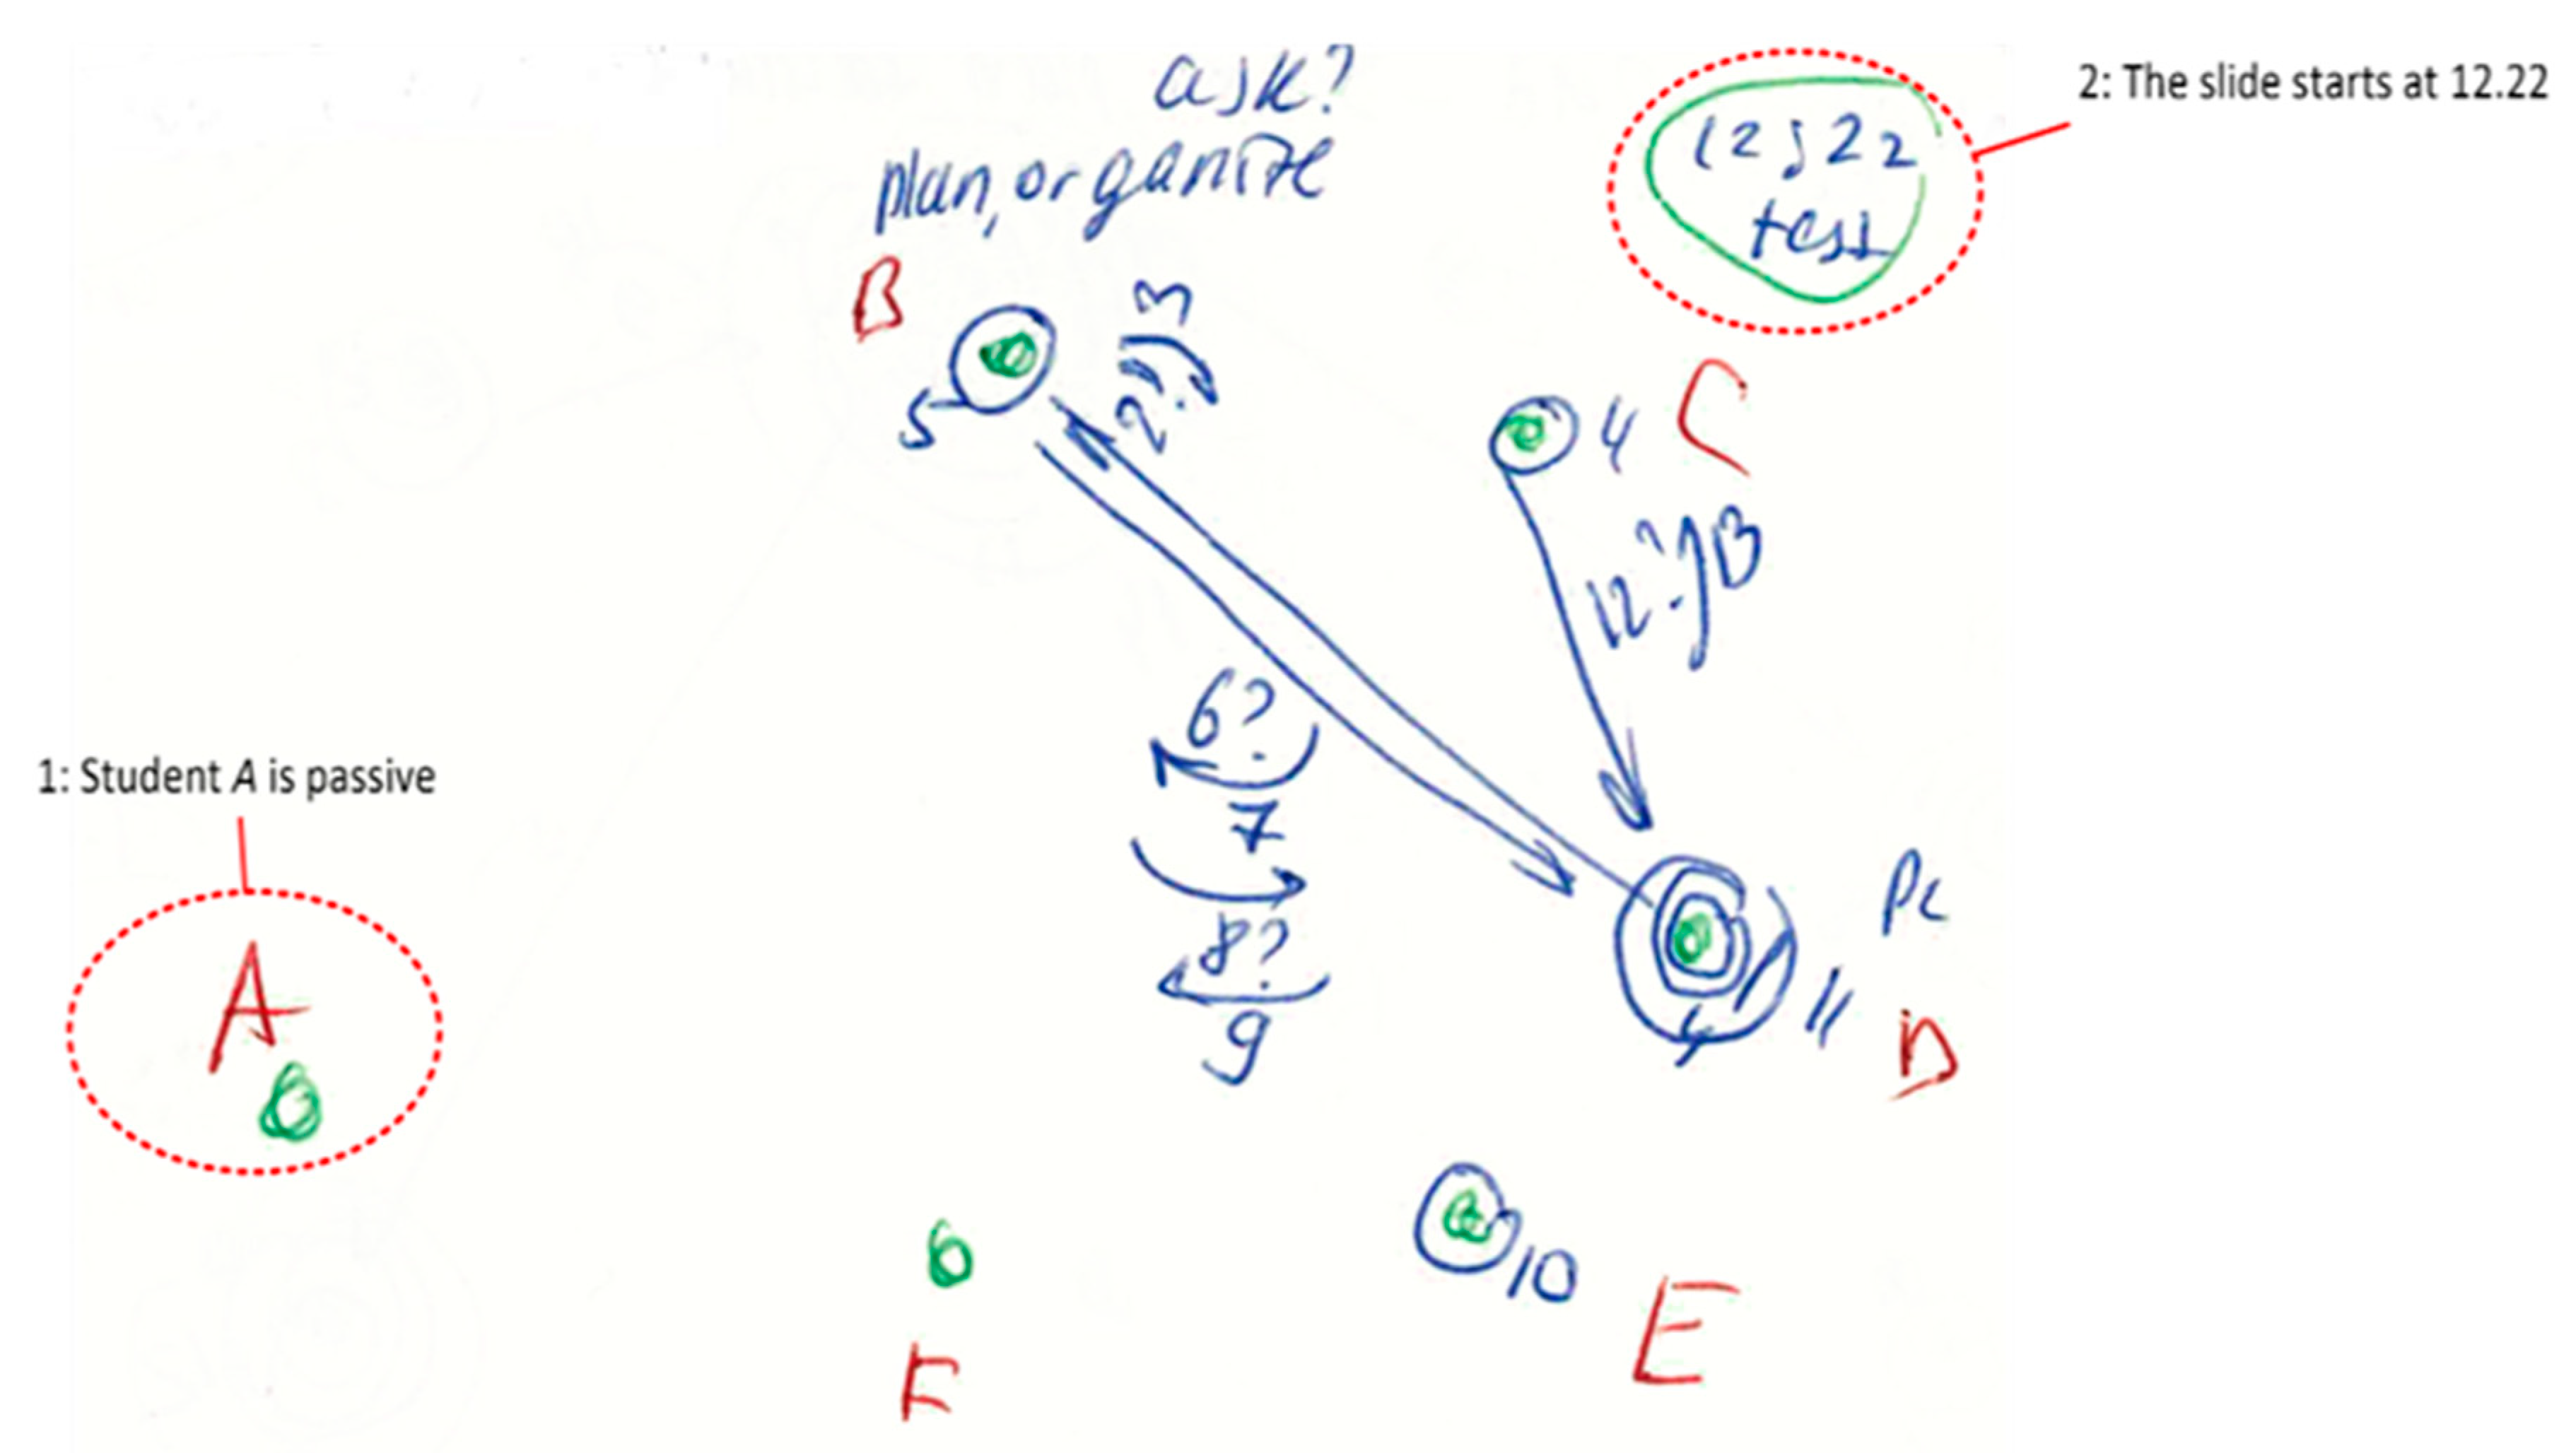 ask?
plan, organize
12;22
test
2: The slide starts at 12.22
B
3
2?
5
4
C
12?
13
6?
7
8?
9
1: Student A is passive
A
PC
11
D
10
E
F